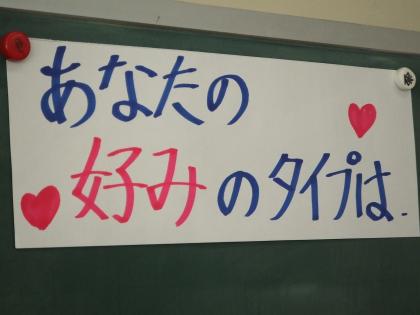 あなたの
好みのタイプは.